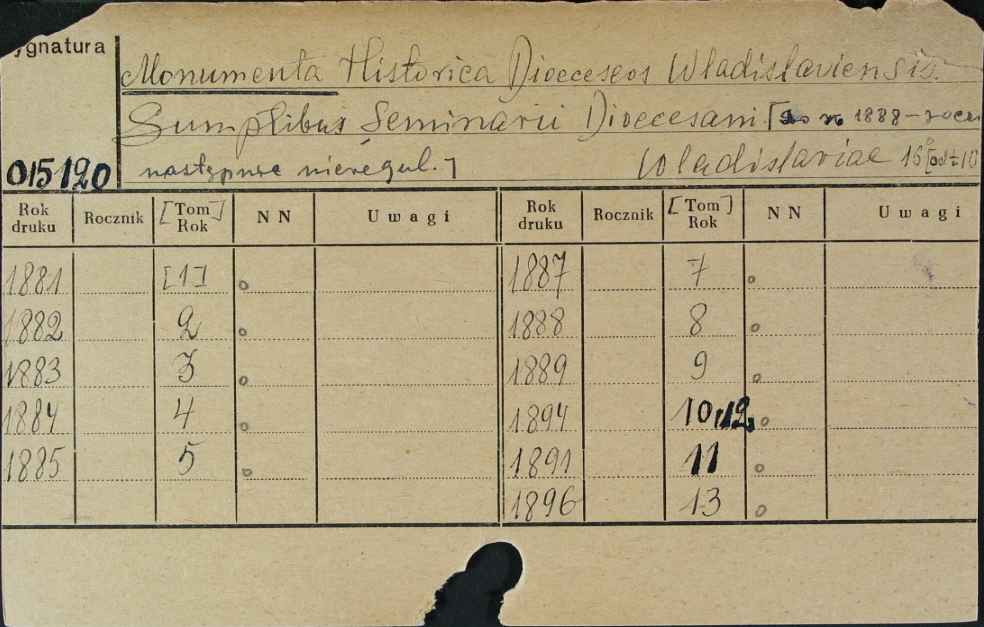 ygnatura
Monumenta Historica Dioeceseos Wladislaviensis.
Sumptibus Seminarii Dioecesani [do r. 1888 - rocz
015120 następnie nieregul.] Wladislaviae 16°
Rok druku Rocznik [Tom] Rok NN Uwagi Rok druku Rocznik [Tom] Rok NN Uwagi
1881 [1] 1887 7
1882 2 1888 8
1883 3 1889 9
1884 4 1894 10,12,
1885 5 1891 11
1896 13